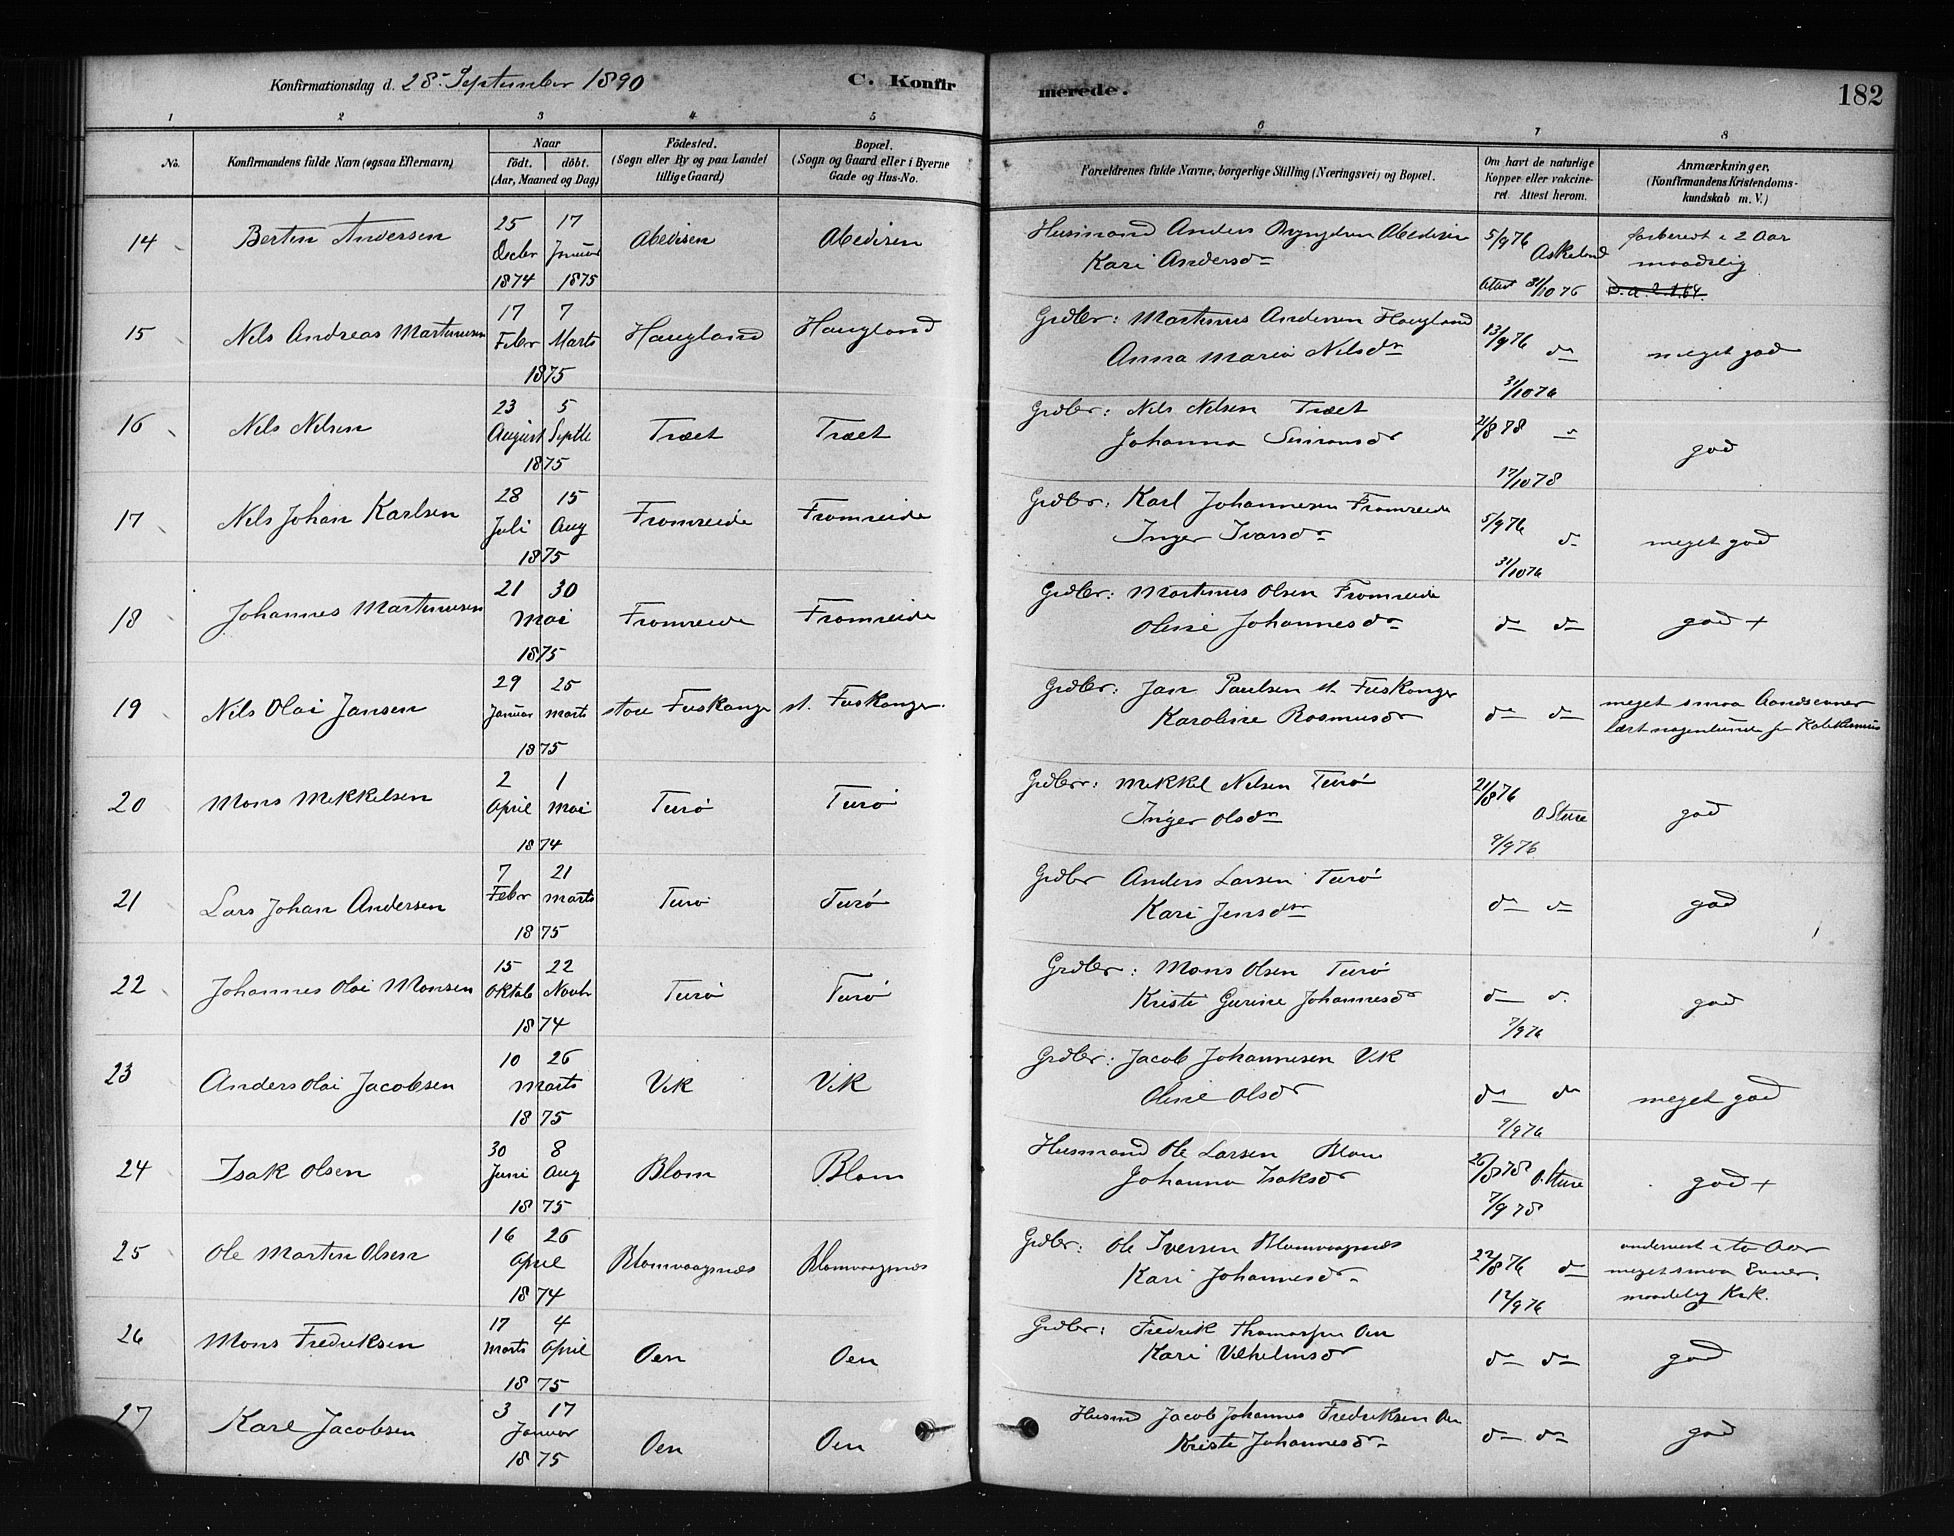 Konfirmationsdag d. 28 September 1890 C. Konfirmerede. 182
1 2 3 4 5 6 7 8
No. Konfirmandens fulde Navn (ogsaa Efternavn) Naar født. døbt. (Aar, Maaned og Dag) Födested. (Sogn eller By og paa Landet tillige Gaard) Bopæl. (Sogn og Gaard eller i Byerne Gade og Hus-No. Forældrenes fulde Navne, borgerlige Stilling (Næringsvei) og Bopæl. Om havt de naturlige Kopper eller vakcineret. Attest herom. Anmærkninger, (Konfirmandens Kristendomskundskab m. V.)
14 Bertin Andersen 25 Decbr 1874 17 Januar 1875 Abedisen Abedisen Husmand Anders Abedisen
Kari Andersd 5/9 76 Askeland Attest 31/10 76 forberedt i 2 Aar maadelig
15 Nils Andreas Martinusen 17 Febr 7 Marts 1875 Haugland Haugland Grdbr: Martinus Andersen Haugland
Anna Maria Nilsdr 13/9 76 do 31/10 76 meget god
16 Nils Nilsen 23 August 5 Septbr 1875 Træet Træet Grdbr: Nils Nilsen Træet
Johanna Simonsdr 21/8 78 17/10 78 god
17 Nils Johan Karlsen 28 Juli 15 Aug 1875 Fromreide Fromreide Grdbr: Karl Johannesen Fromreide
Inger Ivarsdr 5/9 76 do 31/10 76 meget god
18 Johannes Martinusen 21 30 Mai 1875 Fromreide Fromreide Grdbr: Martinus Olsen Fromreide
Oline Johannesdr do do god +
19 Nils Olai Jansen 29 Januar 25 Marts 1875 store Fuskanger st. Fuskanger. Grdbr: Jan Paulsen st. Fuskanger
Karoline Rasmusdr do do meget smaa Aandsevner
læst nogenlunde Katekismus
20 Mons Mikkelsen 2 April 1 Mai 1874 Turø Turø Grdbr: Mikkel Nilsen Turø
Inger Olsdr 21/8 76 O Sture 9/9 76 god
21 Lars Johan Andersen 7 Febr 21 Marts 1875 Turø Turø Grdbr Anders Larsen Turø
Kari Jensdtr do do god
22 Johannes Olai Monsen 15 Oktob 22 Novbr 1874 Turø Turø Grdbr: Mons Olsen Turø
Kristi Gurine Johannesdr do d. 7/9 76 god
23 Anders Olai Jacobsen 10 26 Marts 1875 Vik Vik Grdbr: Jacob Johannesen Vik
Oline Olsdr do do 9/9 76 meget god
24 Isak Olsen 30 Juni 8 Aug 1875 Blom Blom Husmand Ole Larsen Blom
Johanna Isaksdr 26/8 78 O. Sture 7/9 78 god +
25 Ole Martin Olsen 16 26 April 1874 Blomvaagnæs Blomvaagnæs Grdbr: Ole Iversen Blomvaagnæs
Kari Johannesdr 22/8 76 do 12/9 76 undervist i to Aar
meget smaa Evner.
maadelig Krk.
26 Mons Fredriksen 17 Marts 4 April 1875 Oen Oen Grdbr: Fredrik Thomassen Oen
Kari Vilhelmsdr do do god
27 Karl Jacobsen 3 17 Januar 1875 Oen Oen Husmd Jacob Johannes Fredriksen Oen
Kristi Johannesdr do do god